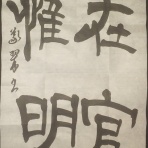 在官
惟明